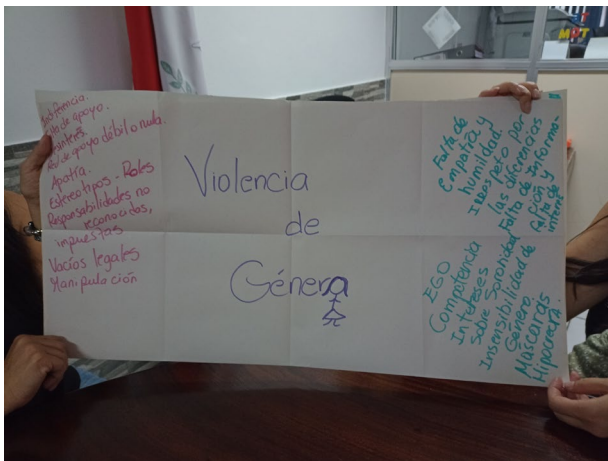 Indiferencia.
Falta de apoyo.
Desinterés.
Red de apoyo débil o nula.
Apatía.
Estereotipos - Roles
Responsabilidades no
reconocidas,
impuestas
Vacíos legales
Manipulación
Violencia
de
Génera
Falta de
empatía y
humildad.
peto por
las diferencias
Falta de Informa-
ción y
Falta de
interés
EGO
Competencia
Intereses
sobre Sororidad
Insensibilidad de
Género
Máscaras
Hipocresía.
MDT